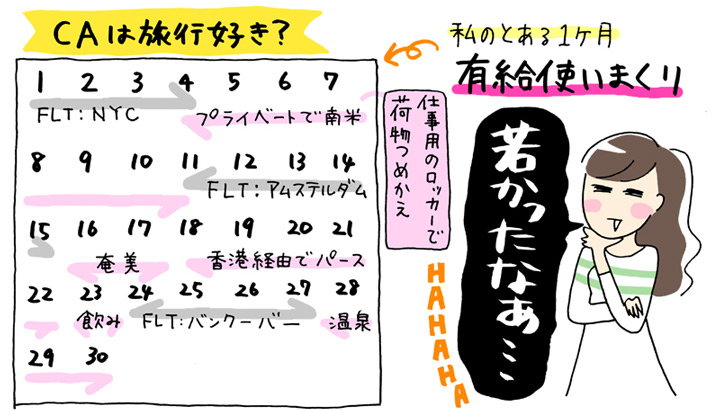 CAは旅行好き?
私のとある1ヶ月
有給使いまくり
1 2 3 4 5 6 7
FLT:NYC
プライベートで南米
8 9 10 11 12 13 14
FLT:アムステルダム
15 16 17 18 19 20 21
奄美
香港経由でパース
22 23 24 25 26 27 28
飲み
FLT:バンクーバー
温泉
29 30
仕事用のロッカーで
荷物つめかえ
若かったなぁ…
HAHAHAHA